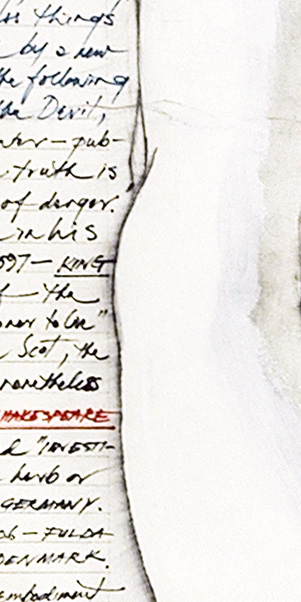 things
by a new
the following
the Devil,
pub-
truth is
of danger.
in his
597 — KING
the
to be"
Scot, the
nonetheless
SHAKESPEARE
herb or
GERMANY.
06 — FULDA
DENMARK.
embodiment